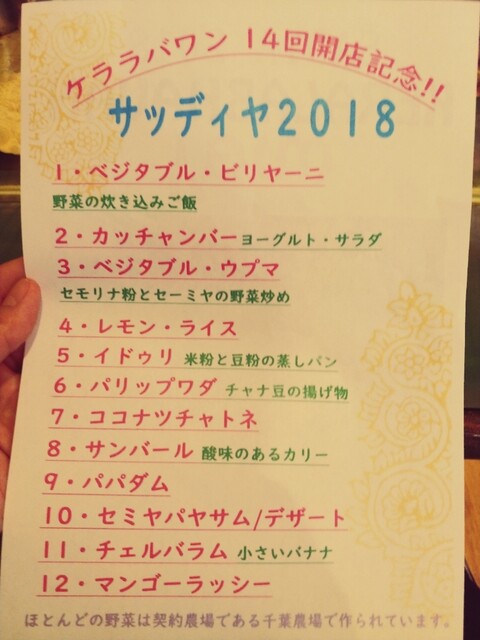 ケララバワン 14回開店記念!!
サッディヤ2018
1・ベジタブル・ビリヤーニ
野菜の炊き込みご飯
2・カッチャンバーヨーグルト・サラダ
3・ベジタブル・ウプマ
セモリナ粉とセーミヤの野菜炒め
4・レモン・ライス
5・イドゥリ 米粉と豆粉の蒸しパン
6・パリップワダ チャナ豆の揚げ物
7・ココナツチャトネ
8・サンバール 酸味のあるカリー
9・パパダム
10・セミヤパヤサム/デザート
11・チェルバラム 小さいバナナ
12・マンゴーラッシー
ほとんどの野菜は契約農場である千葉農場で作られています。